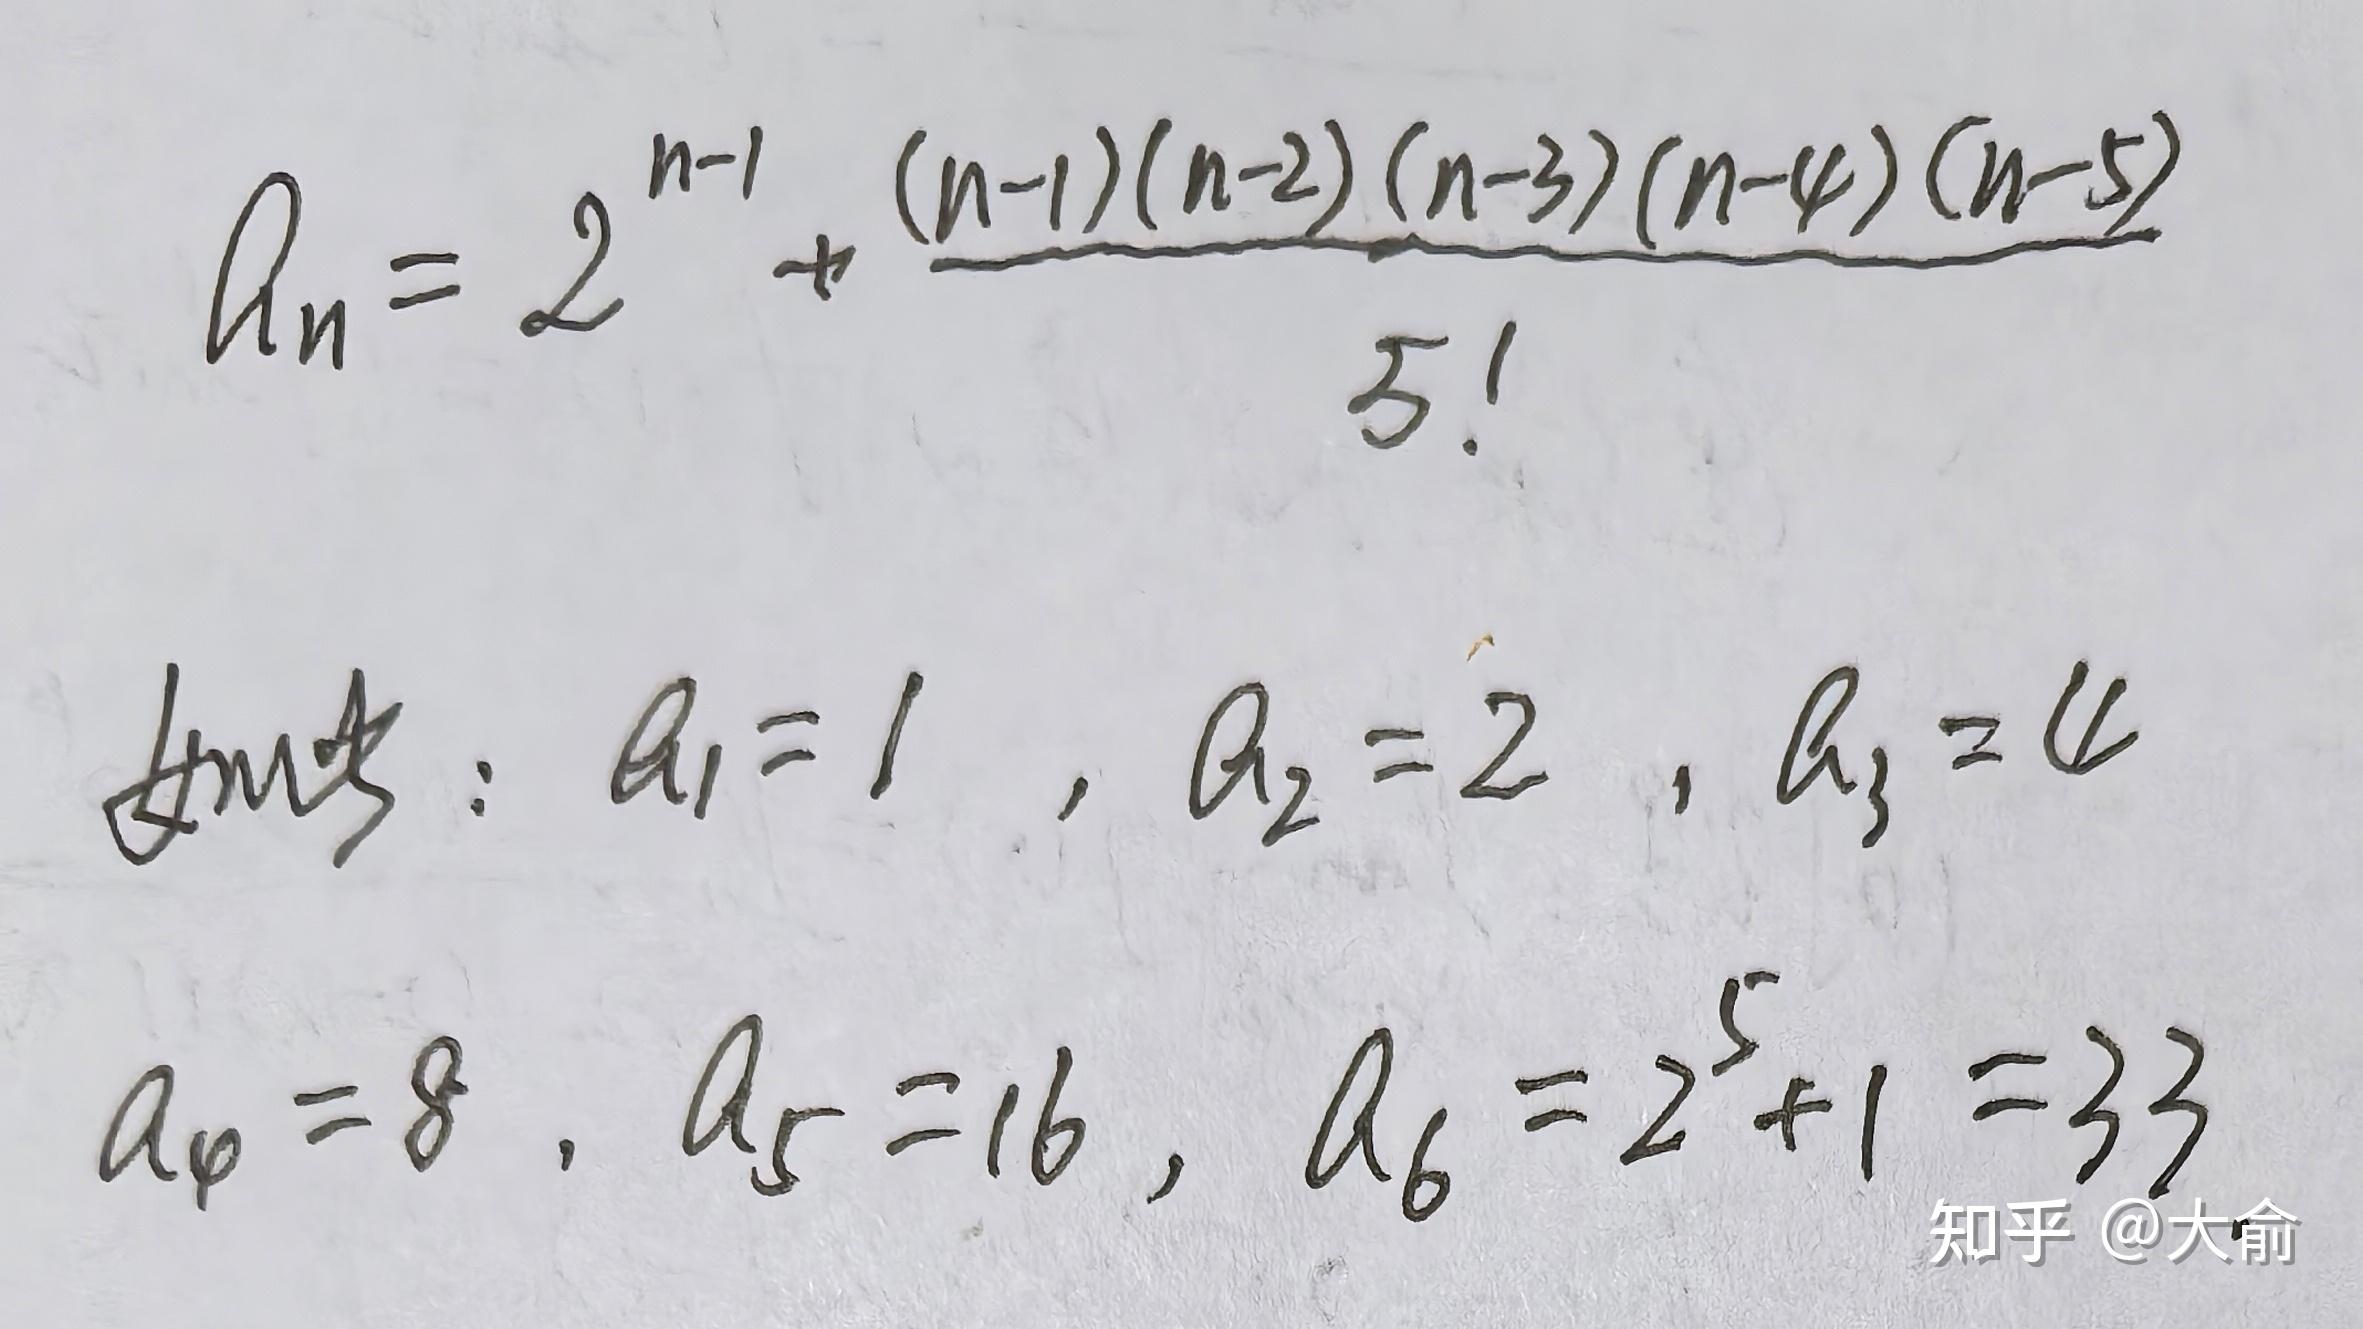 aₙ = 2ⁿ⁻¹ + (n-1)(n-2)(n-3)(n-4)(n-5)
5!
: a₁=1 , a₂=2 , a₃=4
a₄=8 , a₅=16 , a₆=2⁵+1=33.
知乎 @大俞